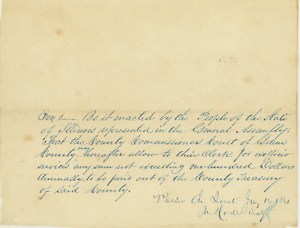 Be it enacted by the People of the State
of Illinois represented in the General Assembly,
That the County Commissioners Court of
County, hereafter allow to their Clerk for
services any sum not exceeding one hundred Dollars
Annually, to be paid out of the County Treasury
of Said County.